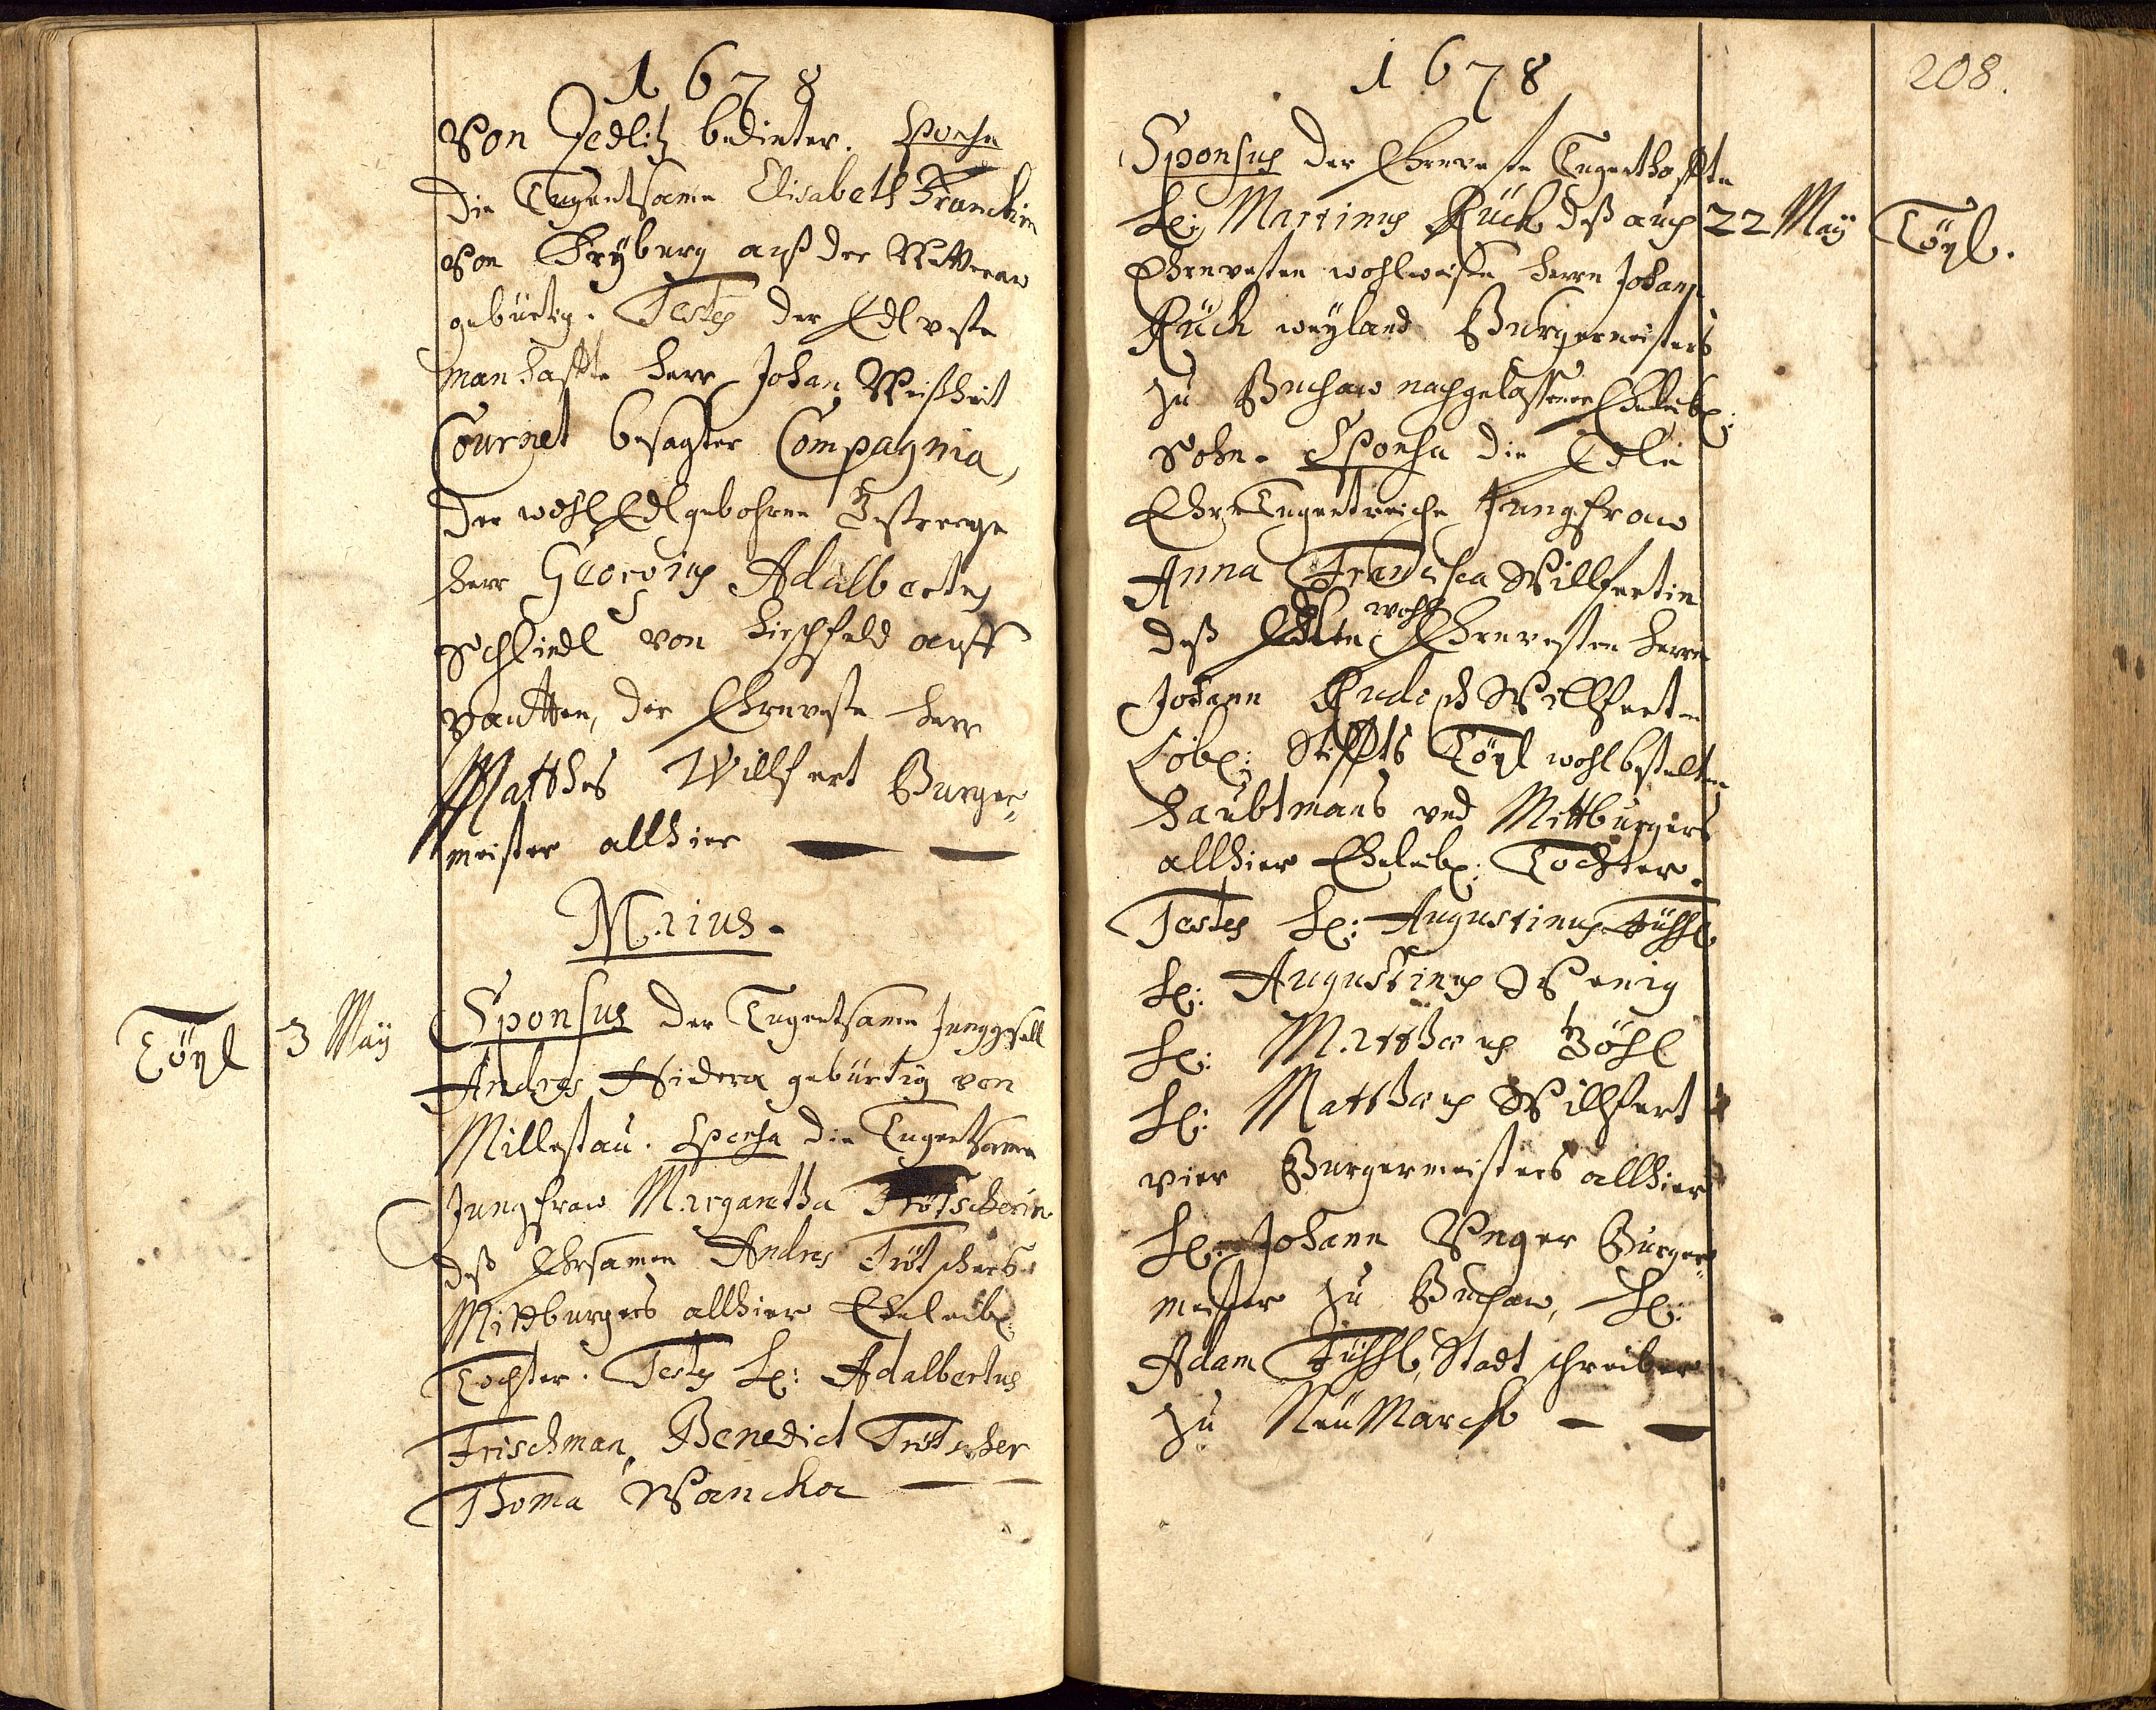 1678
Von Zedlitz bedinter. Sponsa
die Tugentsame Elisabeth Franckin
Von Freyburg auß der Wetteraw
gebürtig. Testes der Edlveste
manhaffte Herr Johan Weißheit
Cournet besagter Compagnia,
der wohl Edlgebohrne Gestrenge
Herr Georgius Adalbertus
Schliedl von Hirschfeld auff
, der Ehrnveste Herr
Matthes Willfert Burger„
meister allhier
Maius.
Töpl
3 May
Sponsus der Tugentsame Junggesell
Andres Hidera gebürtig von
Millestau. Sponsa die Tugentsame
Jungfraw Margaretha Trötscherin
deß Ehrsamen Andres Trötschers
Mittburgers allhier Eheleibl:
Tochter. Testes H: Adalbertus
Frischman, Benedict Trötscher
Thoma Wancka
208.
1678
Sponsus der Ehrnveste Tugenthaffte
H: Martinus Rück deß auch
22 May
Töpl.
Ehrnvesten wohlweisen Herrn Johann
Rück weyland Burgermeisters
zu Buchaw nachgelassener Eheleibl:
Sohn. Sponsa die Edle
Ehrn Tugentreiche Jungfraw
Anna Francisca Willfertin
deß Edlen wohl Ehrnvesten Herrn
Johann Willfert
Löbl: Stiffts Töpl wohlbestelten
Haubtmans und Mittburgers
allhier Eheleibl: Tochter.
Testes H: Augustinus Füssl
H: Augustinus Wenig
H: Matthæus Böhl
H: Matthæus Willfert
vier Burgermeisters allhier
H: Johann Unger Burger„
meister zu Buchaw, H:
Adam Füssl, Stadt schreiber
zu NeuMarckt